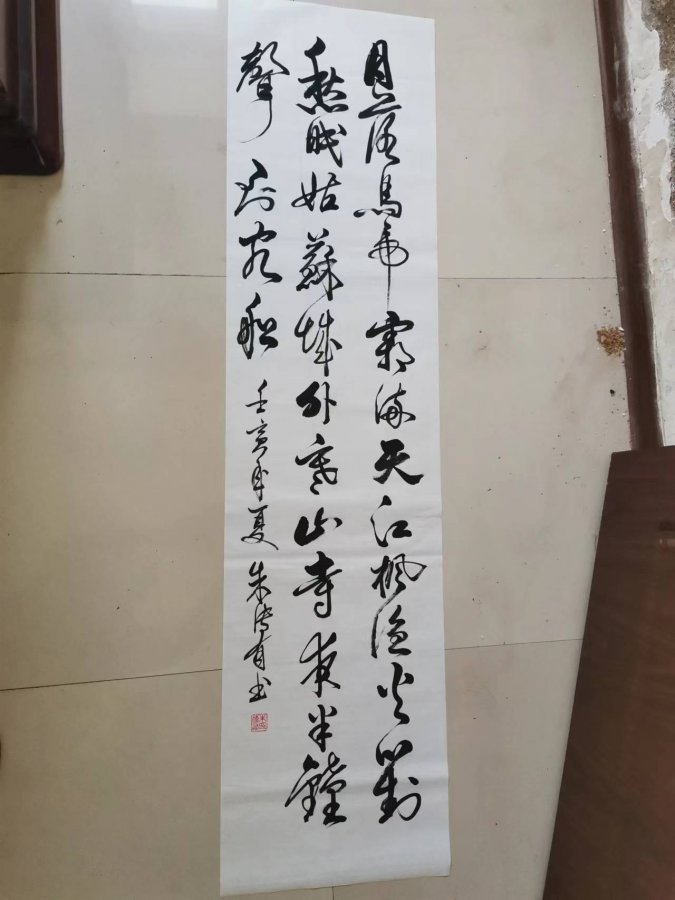 月落烏啼霜滿天江楓漁火對
愁眠姑蘇城外寒山寺夜半鐘
聲到客船
壬寅年夏 朱傳有书